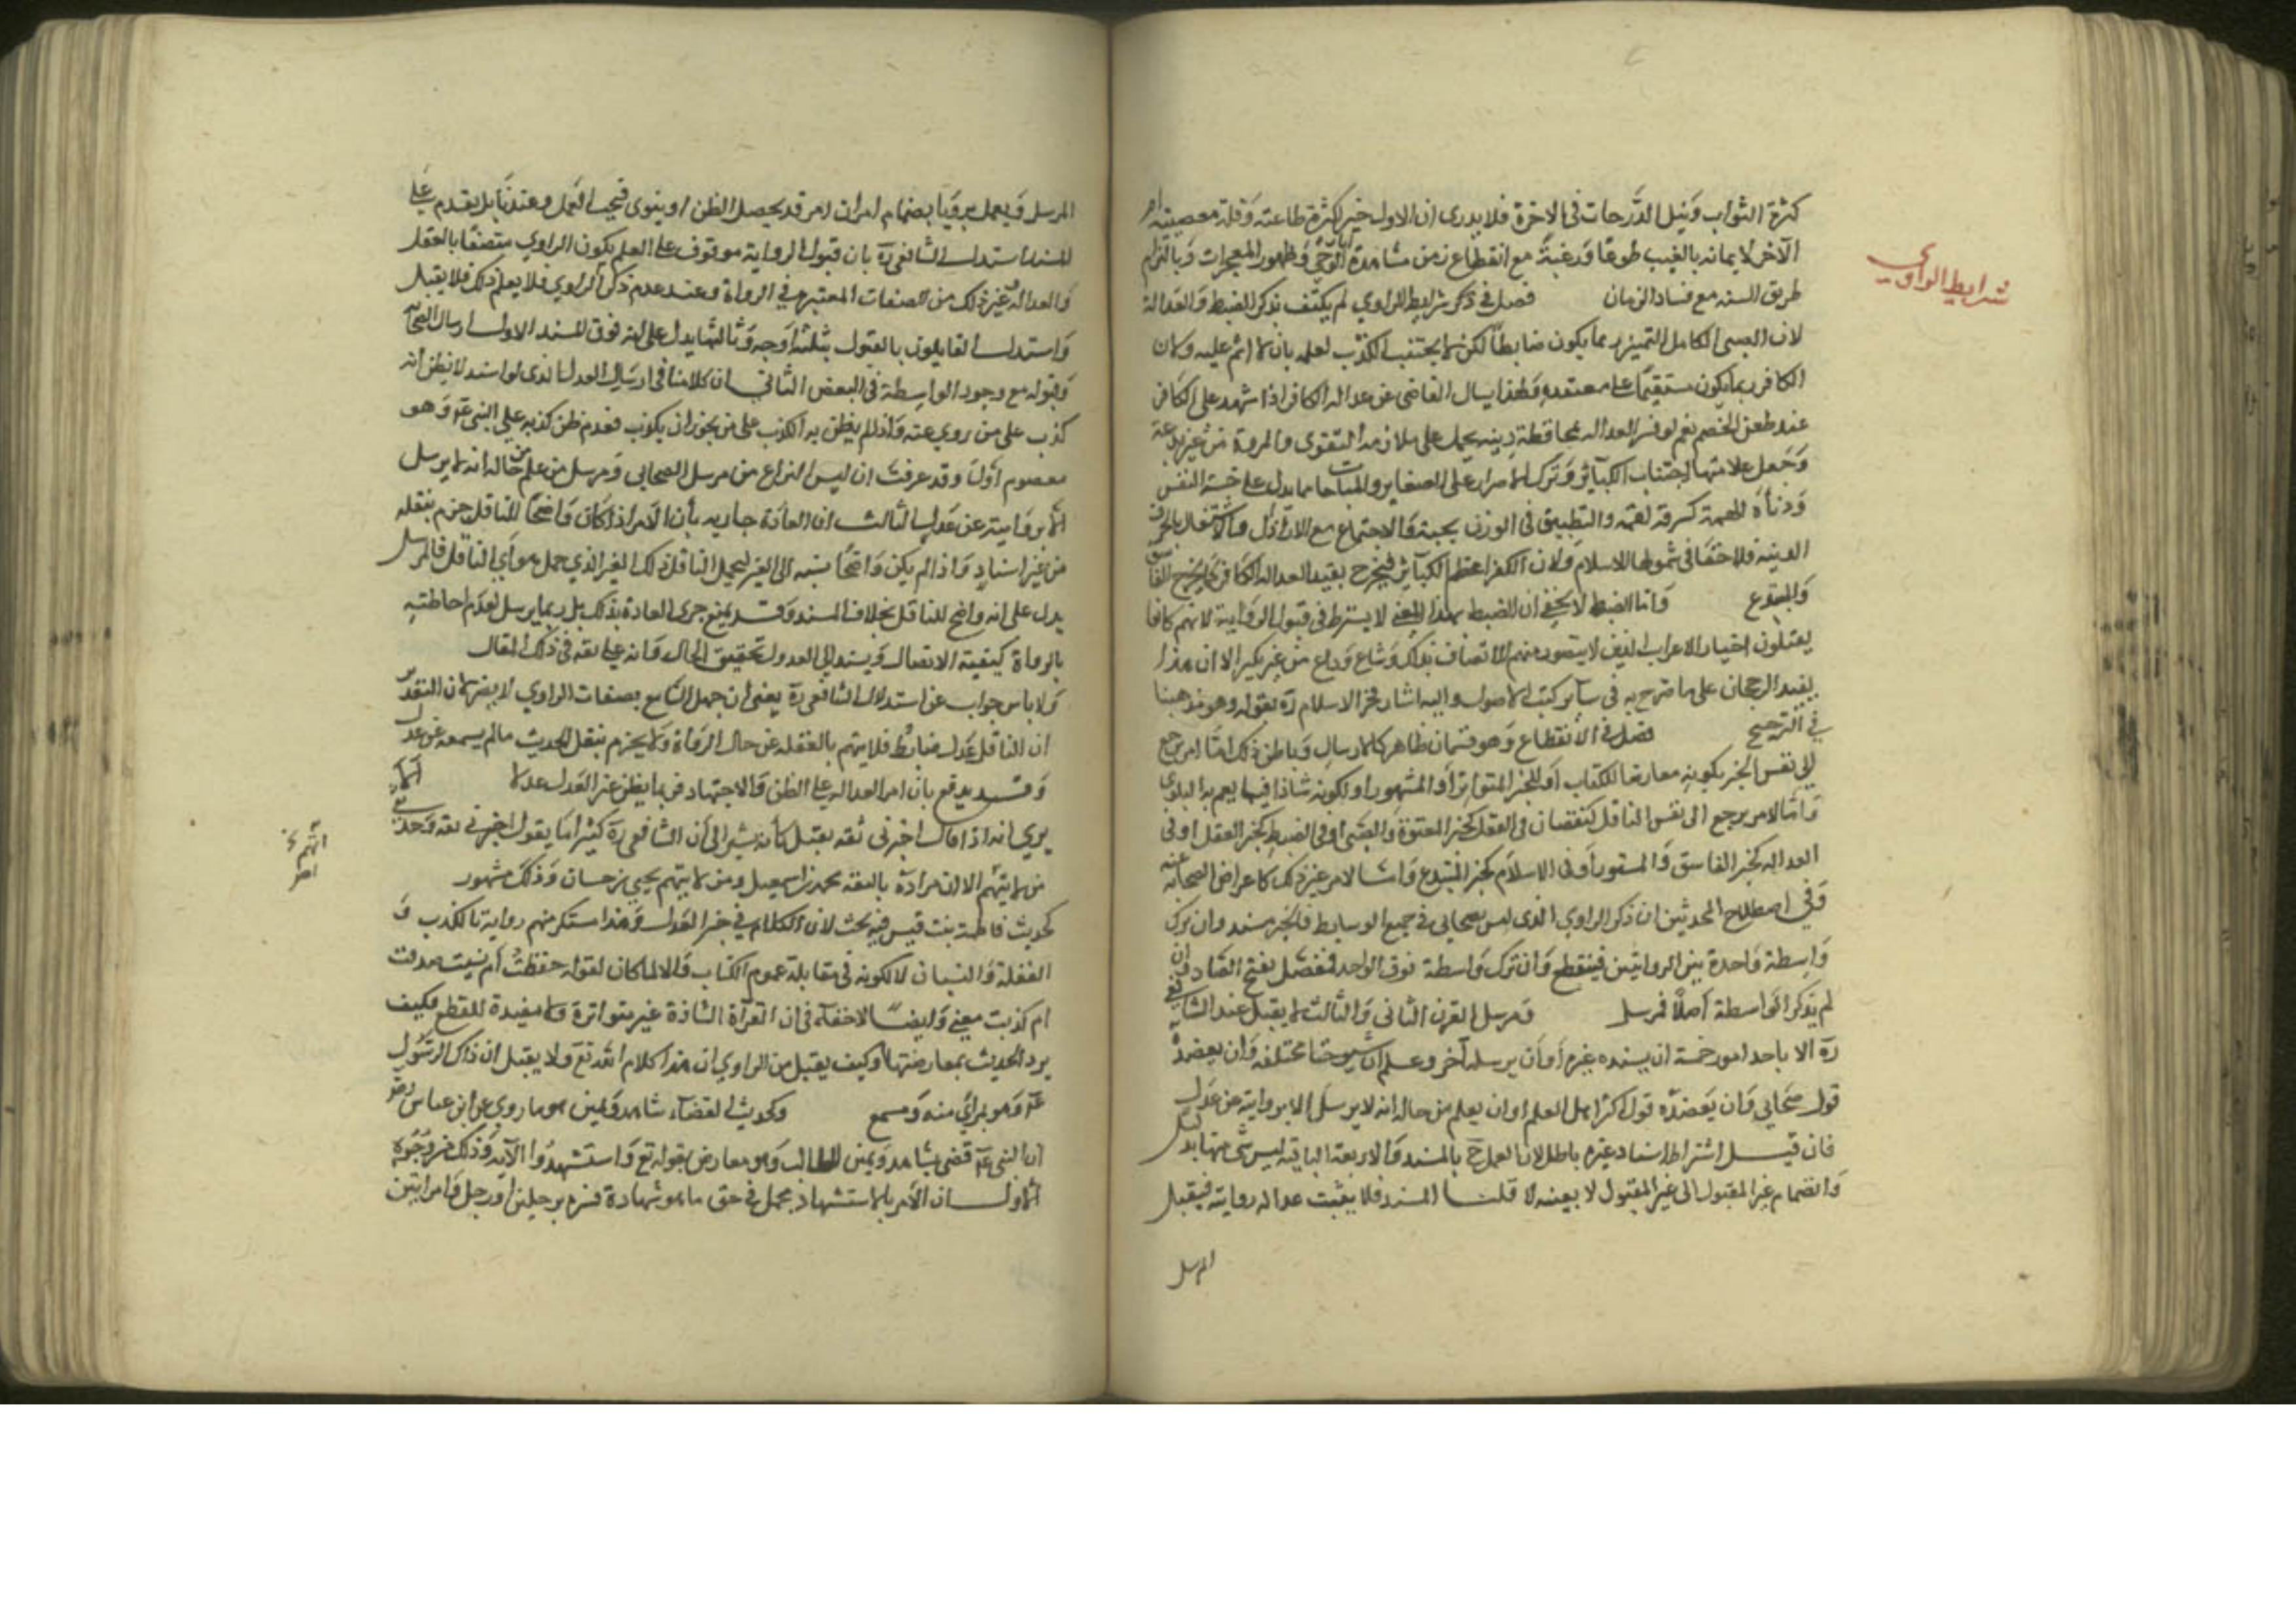 شرايط الراوي
كثرة الثواب ونيل الدرجات في الاخرة فلا يدرى ان الاول خير لكثرة طاعته وقلة معصيته ام
الآخر لايمانه بالغيب طوعا ورغبة مع انقطاع زمن مشاهدة آثار الوحي وظهور المعجزات وبالتزام
طريق السنه مع فساد الزمان فصل في ذكر شرايط الراوي لم يكتف بذكر الضبط والعدالة
لان الصبى الكامل التميز ربما يكون ضابطا لكن لا يجتنب الكذب لعلمه بان لا اثم عليه وكان
الكافر ربما يكون مستقيما على معتقده ولهذا يسال القاضى عن عدالة الكافر اذا شهد على الكافر
عند طعن الخصم نعم لو فسر العداله بمحافظة دينيه يحمل على ملازمة التقوى والمروة من غير بدعة
وجعل علامتها اجتناب الكبآئر وترك الاصرار على الصغاير والمباحات مما يدل على خسة النفس
ودنأة الهمة كسرقة لقمة والتطفيف في الوزن بحبة والاجتماع مع الاراذل والاشتغال بالحرف
الدنية فلا خفا في شمولها الاسلام ولان الكفر اعظم الكبآئر فيخرج بقيد العداله الكافر كما يخرج الفاسق
والمبتدع واما الضبط لا يخفى ان الضبط بهذا المعنى لا يشترط في قبول الرواية لانهم كانوا
يقبلون اخبار الاعراب الذين لا يتصور منهم الاتصاف بذلك وشاع وذاع من غير نكير الا ان هذا
يفيد الرجحان على ما صرح به في سآير كتب الاصول واليه اشار فخر الاسلام ره بقوله وهو مذهبنا
في الترجيح فصل في الانقطاع وهو قسمان ظاهر كالارسال وباطن وذلك اما امر يرجع
الى نفس الخبر بكونه معارضا للكتاب او للخبر المتواتر او المشهور او لكونه شاذا فيما يعم به البلوى
واما لامر يرجع الى نفس الناقل كنقصان في العقل كخبر المعتوه والصبى او في الضبط كخبر المغفل او في
العداله كخبر الفاسق والمستور او في الاسلام كخبر المبتدع واما لامر غير ذلك كاعراض الصحابة عنه
وفي اصطلاح المحدثين ان ذكر الراوي الذى ليس بصحابي في جميع الوسايط فالخبر مسند وان ترك
واسطة واحدة بين الراويين فمنقطع وان ترك واسطة فوق الواحد فمعضل بفتح الضاد وان
لم يذكر الواسطة اصلا فمرسل ومرسل القرن الثاني والثالث لا يقبل عند الشافعي
ره الا باحد امور خمسة ان يسنده غيره او ان يرسله آخر وعلم ان شيوخنا مختلفه وان يعضده
قول صحابي وان يعضده قول اكثر اهل العلم او ان يعلم من حاله انه لا يرسل الا بروايته عن عدل
فان قيل اشتراط اسناد غيره باطل لان العمل ح بالمسند والاربعة الباقية ليس شى منها بدليل
وانضمام غير المقبول الى غير المقبول لا يفيد لا قلنا المسند فلا يثبت عدالة رواته فيقبل
المرسل
المرسل ويعمل به وبانضمام امر ان امر قد يحصل الظن او يقوى فيجب العمل وعندنا بل يقدم على
المسند استدل الشافعي ره بان قبول الرواية موقوف على العلم بكون الراوي متصفا بالعقل
والعدالة وغير ذلك من الصفات المعتبره في الرواة وعند عدم ذكر الراوي فلا يعلم ذلك فلا يقبل
واستدل القايلون بالقبول بثلثة اوجه وثالثها يدل على انه فوق المسند الاول ارسال الصحابة
وقبوله مع وجود الواسطة في البعض الثاني ان كلامنا في ارسال العدل الذى لو اسند لا يظن انه
كذب على من روي عنه واذا لم يظن به الكذب على من يجوز ان يكذب فعدم ظن كذبه على النبي عم وهو
معصوم اولى وقد عرفت ان ليس النزاع من مرسل الصحابي ومرسل من علم من حاله انه لا يرسل
الا بروايته عن عدل الثالث ان العادة جاريه بأن الامر اذا كان واضحا للناقل جزم بنقله
من غير اسناد واذا لم يكن واضحا نسبه الى الغير ليحمل الناقل ذلك الغير الذي حمل هو اي الناقل فالمرسل
يدل على انه واضح للناقل بخلاف المسند وقد يمنع جرى العادة بذلك بل ربما يرسل لعدم احاطته
بالرواة كيفية الاتصال ويسند الى العدول تحقيق الحال وانه على ثقه في ذلك المقال
ولا باس جواب عن استدلال الشافعي ره يعنى ان جهل السامع بصفات الراوي لا يضر لان التقدير
ان الناقل عدل ضابط فلا يتهم بالغفله عن حال الرواة ولا يجزم بنقل الحديث ما لم يسمعه عن عدل
وقد يدفع بان امر العداله على الظن والاجتهاد فربما يظن غير العدل عدلا الا
يري انه اذا قال اخبرني ثقه يقبل كأنه يشير الى ان الشافعي ره كثيرا ما يقول اخبرني ثقه وحدثني
من لا يتهم الا ان مراده بالثقه محمد بن اسمعيل ومن لا يتهم يحيى بن حسان وذلك مشهور
كحديث فاطمة بنت قيس فيه بحث لان الكلام في خبر العدل وهذا مستنكر منهم رواية بالكذب و
الغفلة والنسيان لا لكونه في مقابلة عموم الكتاب والا لما كان لقوله حفظت أم نسيت صدقت
ام كذبت معنى وايضا لا خفاء في ان القرآة الشاذة غير متواترة ولا مفيدة للقطع فكيف
يرد الحديث بمعارضتها وكيف يقبل من الراوي ان هذا كلام الله تع ولا يقبل ان ذاك الرسول
عم وهو بمرأي منه ومسمع وكحديث القضآء بشاهد ويمين هو ما روي عن ابن عباس رضه
ان النبي عم قضى بشاهد ويمين الطالب وهو معارض بقوله تع واستشهدوا الآية وذلك من وجوه
الاول ان الامر بالاستشهاد مجمل في حق ما هو شهادة فسره برجلين او رجل وامراتين